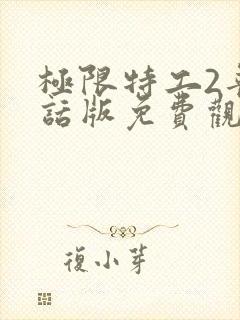 極限特工2
話版免費觀
復小芽